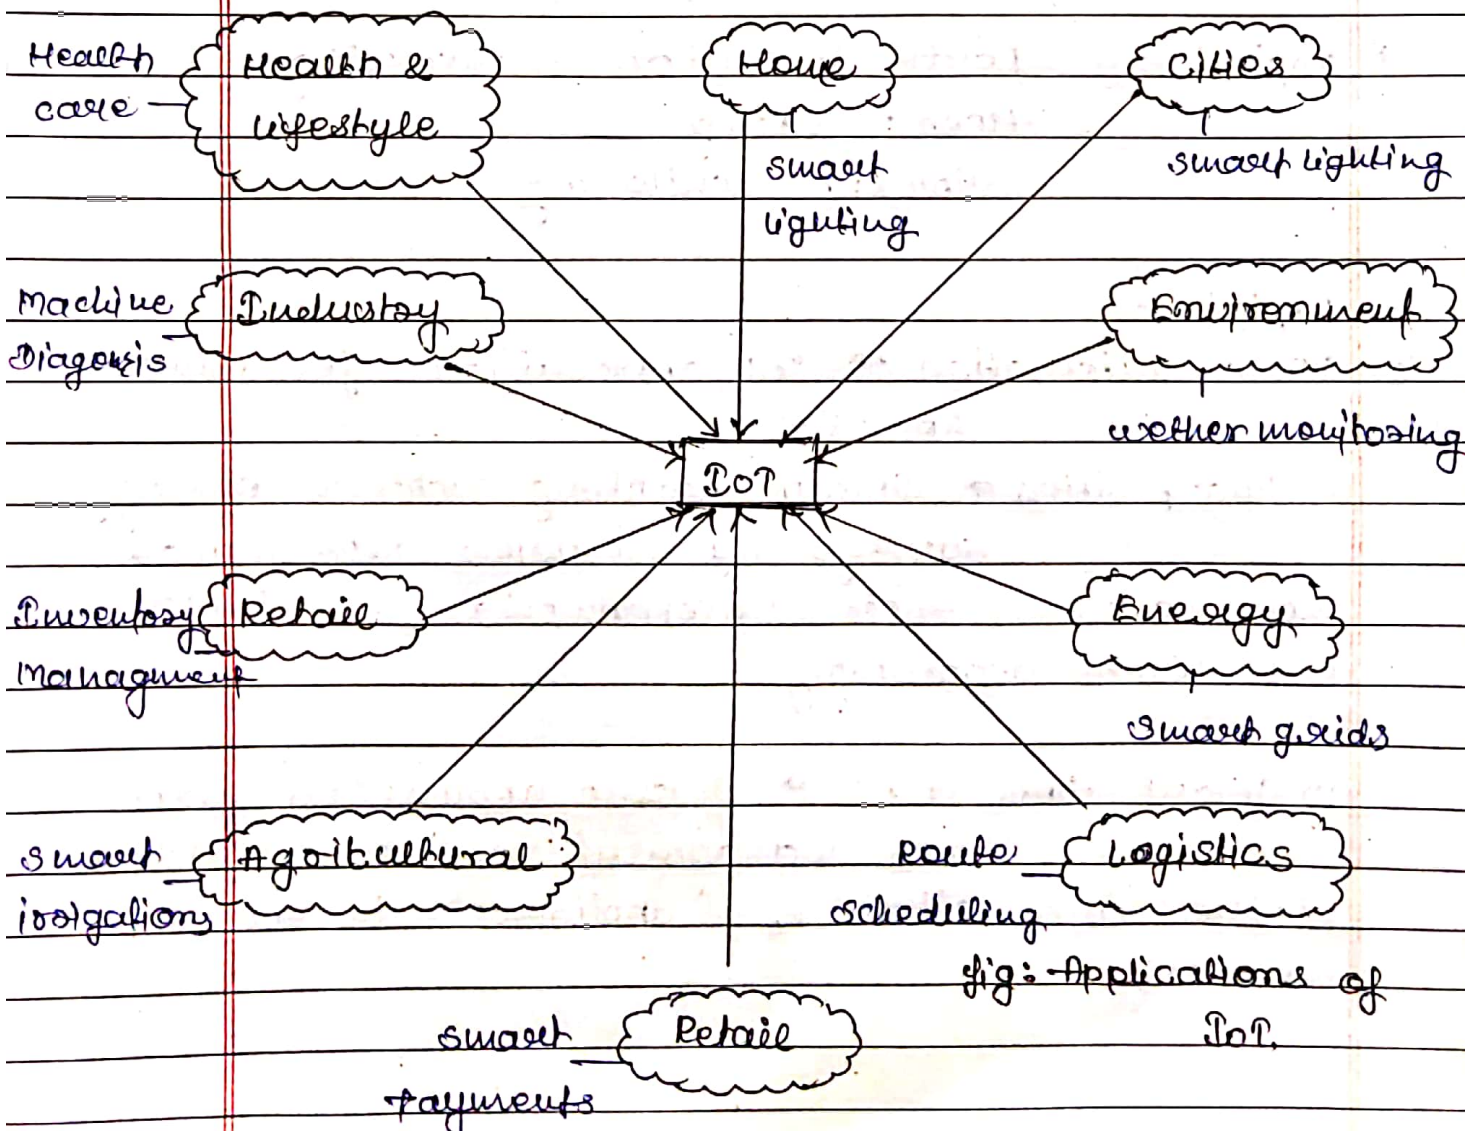 Health
care
Health &
Lifestyle
Home
smart
lighting
Cities
smart lighting
Machine
Diagonsis
Industry
Environment
wether monitoring
IoT
Inventory
Managment
Retail
Energy
smart grids
smart
irrigations
Agricultural
Route
scheduling
Logistics
fig: Applications of
IoT.
smart
payments
Retail